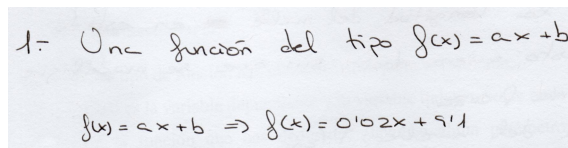 1.- Una función del tipo f(x) = ax + b
f(x) = ax + b => f(x) = 0'02x + 9'1